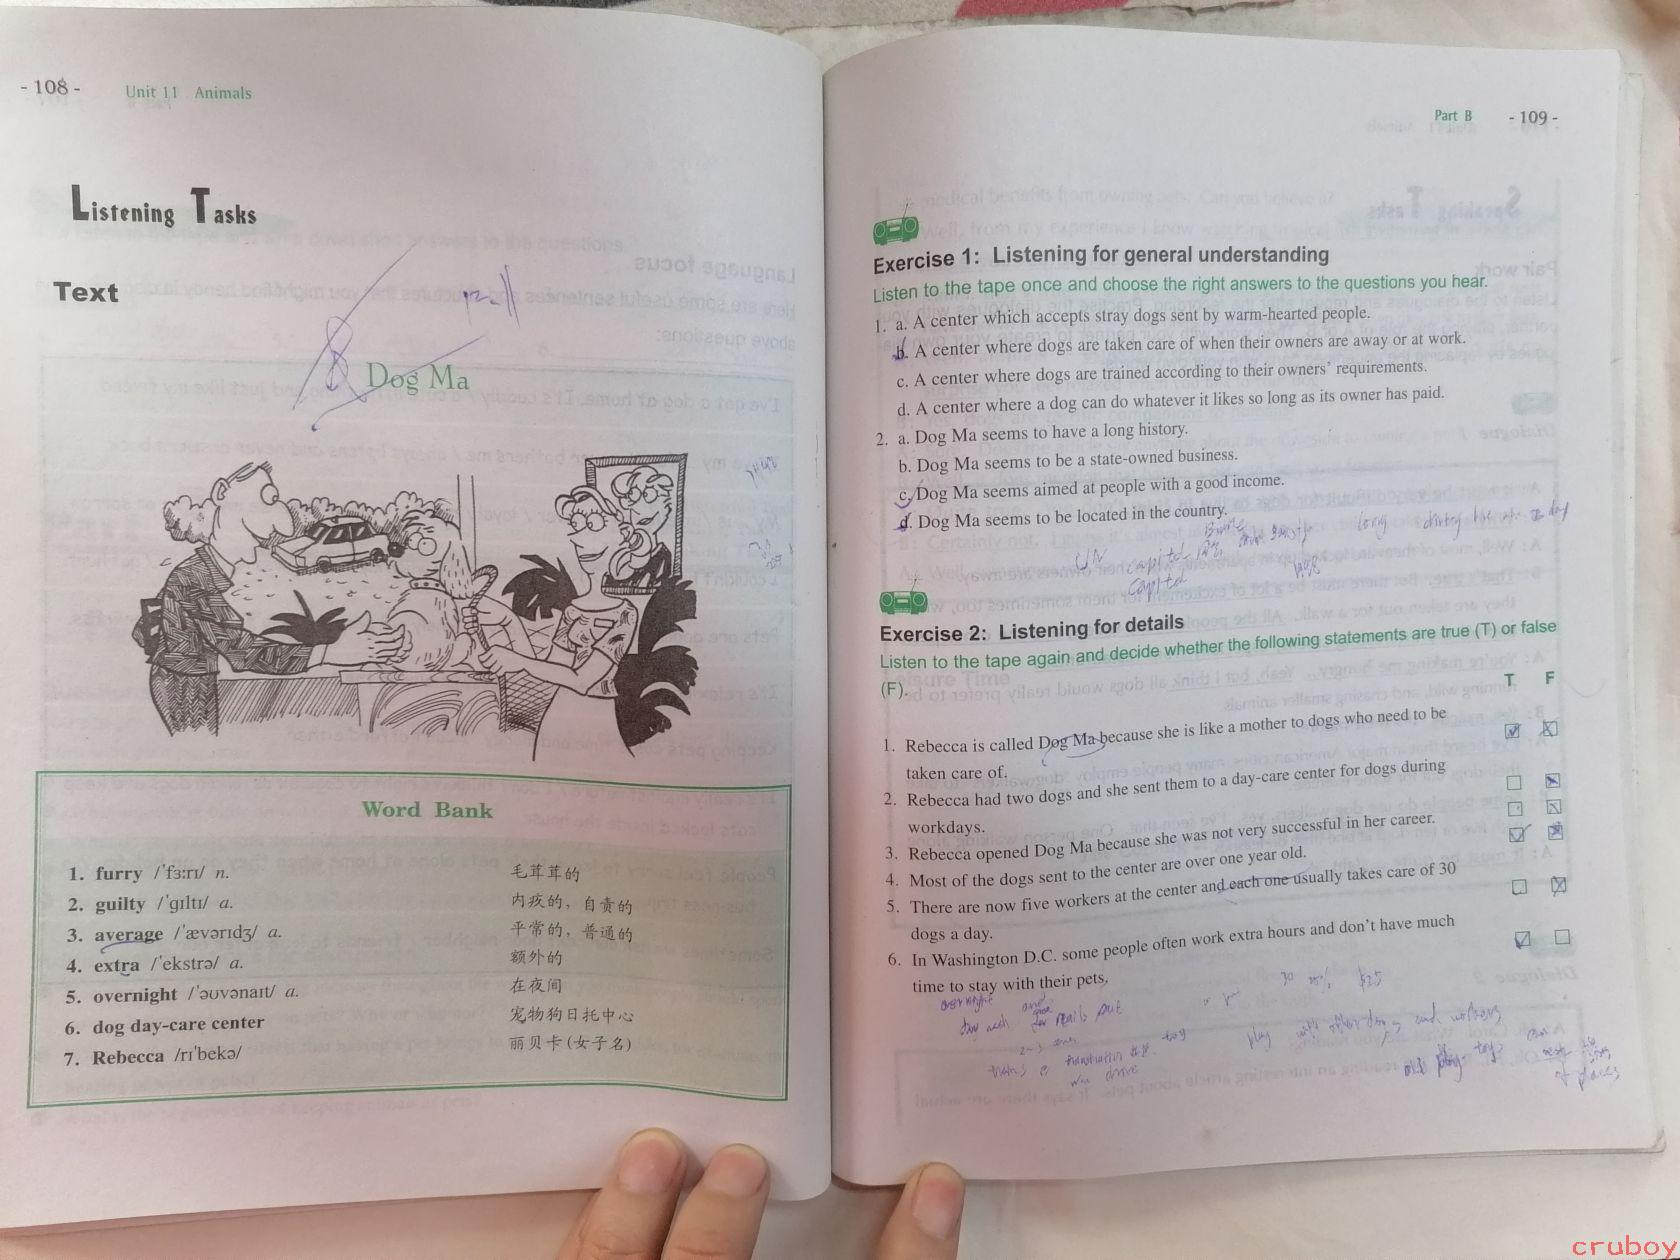 - 108 -
Unit 11 Animals
Listening Tasks
Text
Dog Ma
Word Bank
1. furry /ˈfɜːrɪ/ n. 毛茸茸的
2. guilty /ˈɡɪltɪ/ a. 内疚的，自责的
3. average /ˈævərɪdʒ/ a. 平常的，普通的
4. extra /ˈekstrə/ a. 额外的
5. overnight /ˈəʊvənaɪt/ a. 在夜间
6. dog day-care center 宠物狗日托中心
7. Rebecca /rɪˈbekə/ 丽贝卡(女子名)
Part B
- 109 -
Exercise 1: Listening for general understanding
Listen to the tape once and choose the right answers to the questions you hear.
1. a. A center which accepts stray dogs sent by warm-hearted people.
b. A center where dogs are taken care of when their owners are away or at work.
c. A center where dogs are trained according to their owners' requirements.
d. A center where a dog can do whatever it likes so long as its owner has paid.
2. a. Dog Ma seems to have a long history.
b. Dog Ma seems to be a state-owned business.
c. Dog Ma seems aimed at people with a good income.
d. Dog Ma seems to be located in the country.
UN capital
long
capital
Exercise 2: Listening for details
Listen to the tape again and decide whether the following statements are true (T) or false
(F).
T F
1. Rebecca is called Dog Ma because she is like a mother to dogs who need to be
taken care of.
2. Rebecca had two dogs and she sent them to a day-care center for dogs during
workdays.
3. Rebecca opened Dog Ma because she was not very successful in her career.
4. Most of the dogs sent to the center are over one year old.
5. There are now five workers at the center and each one usually takes care of 30
dogs a day.
6. In Washington D.C. some people often work extra hours and don't have much
time to stay with their pets.
overnight
30
$25
play with other dogs and workers
toy
drive
of places
cruboy